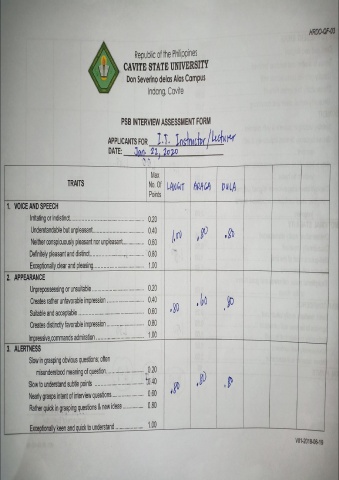 HRDO-QF-03
Republic of the Philippines
CAVITE STATE UNIVERSITY
Don Severino delas Alas Campus
Indang, Cavite
PSB INTERVIEW ASSESSMENT FORM
APPLICANTS FOR I.T. Instructor/Lecturer
DATE: Jan 22, 2020
TRAITS Max No. Of Points LANGIT ARAGA DULA
1. VOICE AND SPEECH
Irritating or indistinct 0.20
Understandable but unpleasant 0.40
Neither conspicuously pleasant nor unpleasant 0.60 1.00 .80 .80
Definitely pleasant and distinct 0.80
Exceptionally clear and pleasing 1.00
2. APPEARANCE
Unprepossessing or unsuitable 0.20
Creates rather unfavorable impression 0.40
Suitable and acceptable 0.60 .80 .60 .80
Creates distinctly favorable impression 0.80
Impressive, commands admiration 1.00
3. ALERTNESS
Slow in grasping obvious questions; often
misunderstood meaning of question 0.20
Slow to understand subtle points 0.40 .80 .80 .80
Nearly grasps intent of interview questions 0.60
Rather quick in grasping questions & new ideas 0.80
Exceptionally keen and quick to understand 1.00